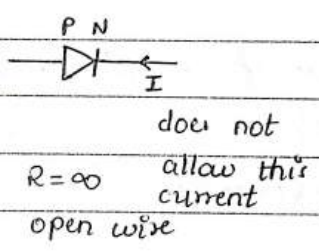 P N
I
does not
R = ∞ allow this
current
open wire